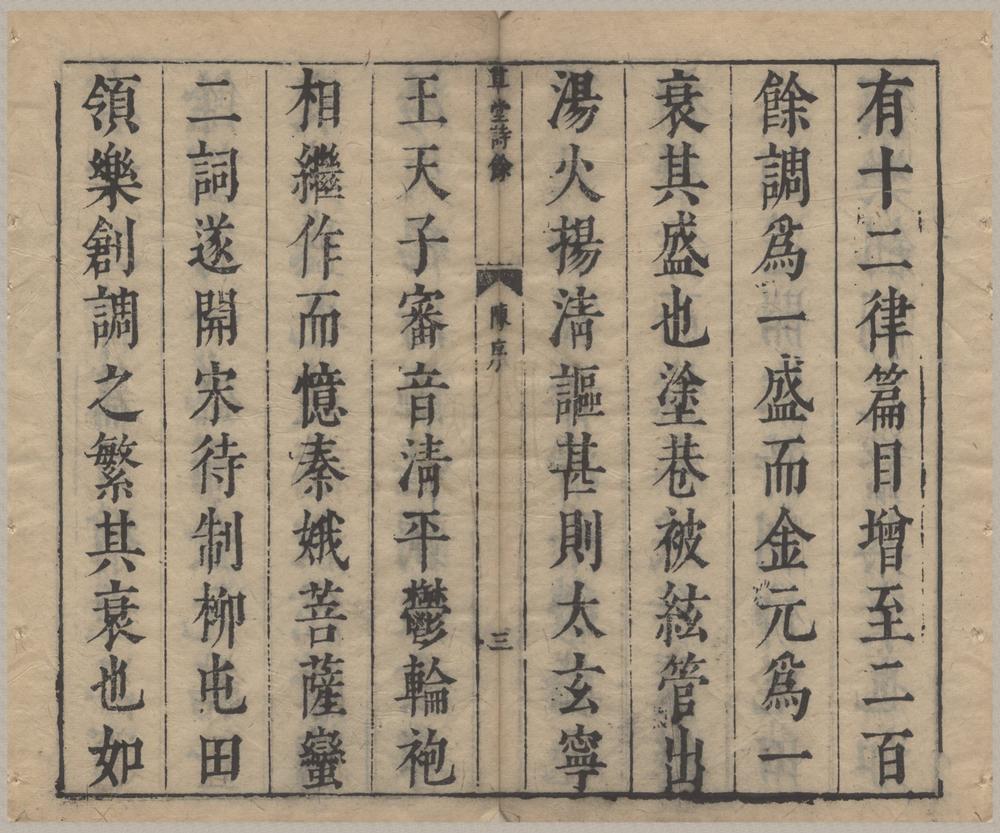 有十二律篇目增至二百
餘調爲一盛而金元爲一
衰其盛也塗巷被絃管出
湯火揚淸謳甚則太玄寧
草堂詩餘 陳序 三
王天子審音淸平鬱輪袍
相繼作而憶秦娥菩薩蠻
二詞遂開宋待制柳屯田
領樂創調之繁其衰也如